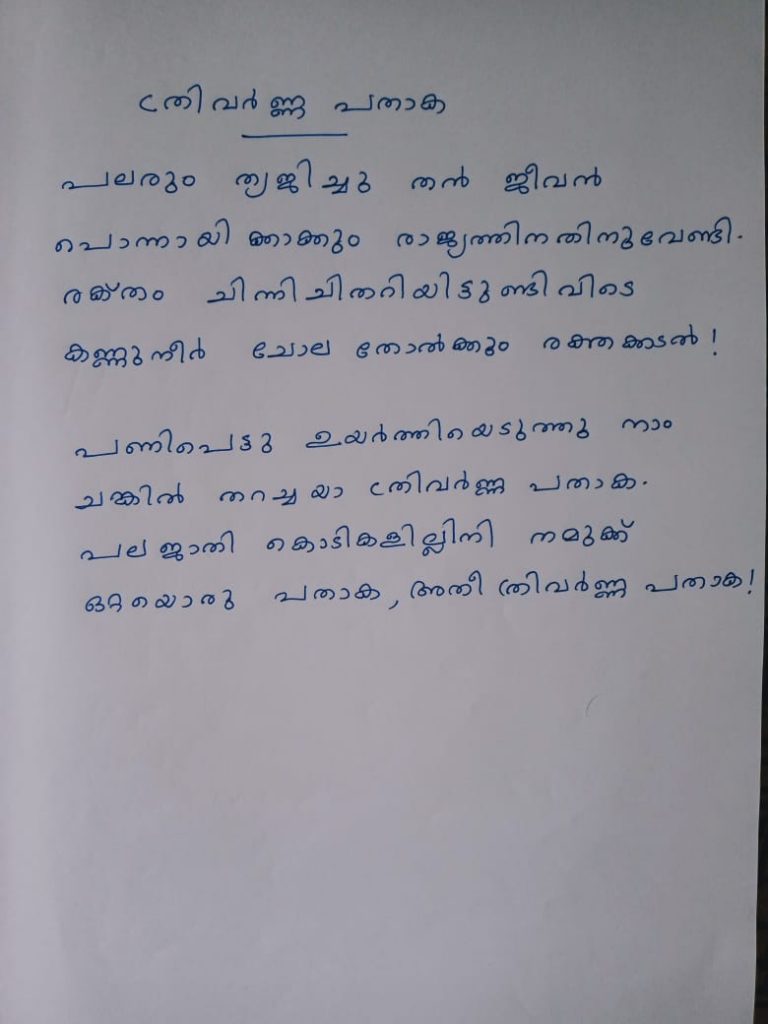 ത്രിവർണ്ണ പതാക
പലരും ത്യജിച്ചു തൻ ജീവൻ
പൊന്നായി ക്കാക്കും രാജ്യത്തിനതിനുവേണ്ടി.
രക്തം ചിന്നിചിതറിയിട്ടുണ്ടിവിടെ
കണ്ണുനീർ ചോല തോൽക്കും രക്തക്കടൽ!
പണിപെട്ടു ഉയർത്തിയെടുത്തു നാം
ചങ്കിൽ തറച്ചയാ ത്രിവർണ്ണ പതാക.
പല ജാതി കൊടികളില്ലിനി നമുക്ക്
ഒറ്റയൊരു പതാക, അതീ ത്രിവർണ്ണ പതാക!